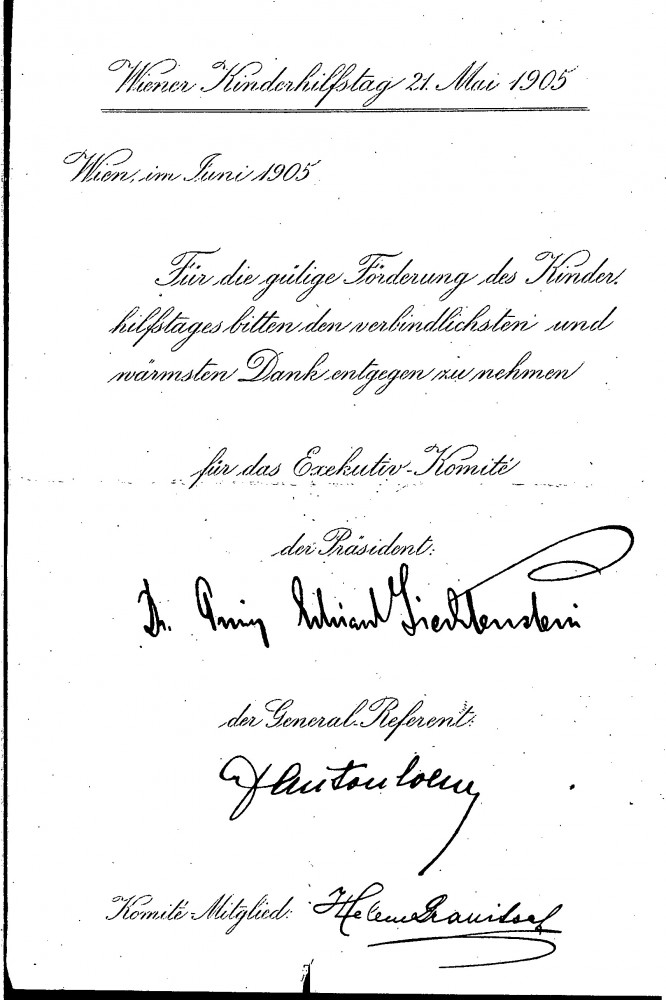 Wiener Kinderhilfstag 21. Mai 1905
Wien, im Juni 1905
Für die gütige Förderung des Kinder-
hilfstages bitten den verbindlichsten und
wärmsten Dank entgegen zu nehmen
für das Exekutiv-Komité
der Präsident:
Dr. Prinz Eduard Liechtenstein
der General-Referent:
Anton Loew
Komité-Mitglied: Helene Granitsch